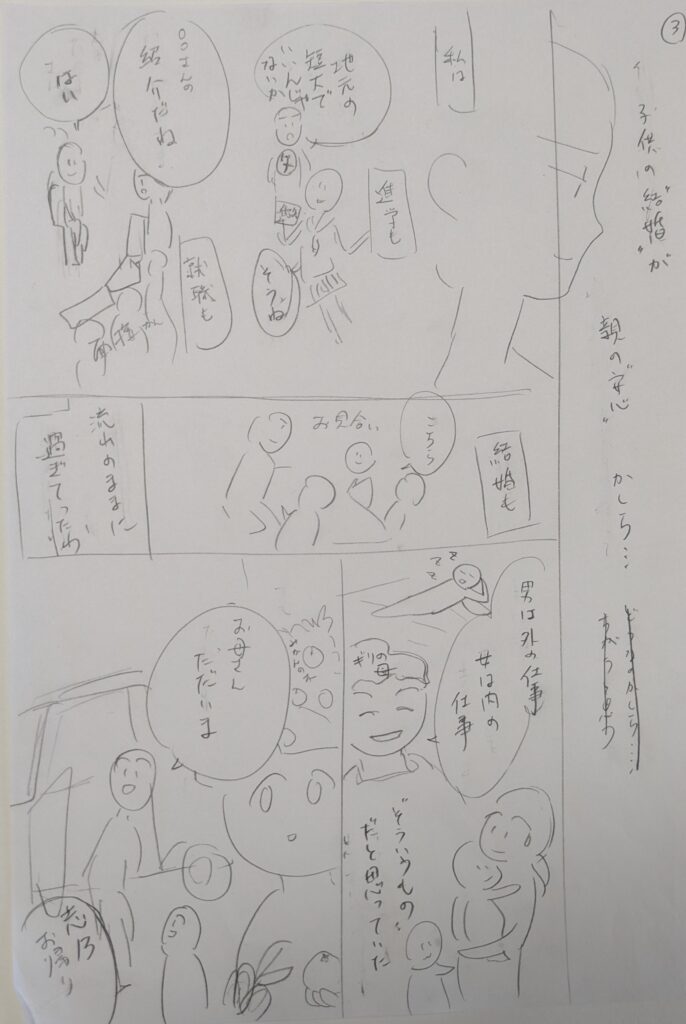 ③
子供の“結婚”が
親の“安心”
かしら…
私は
進学も
地元の
短大で
いいんじゃ
ないか
そうね
就職も
○○さんの
紹介だね
はい
面接
結婚も
こちら
お見合い
流れのままに
過ぎてったわ
男は外の仕事
女は内の
仕事
zzz
ギリの母
“そういうもの”
だと思っていた
お母さん
ただいま
志乃
お帰り